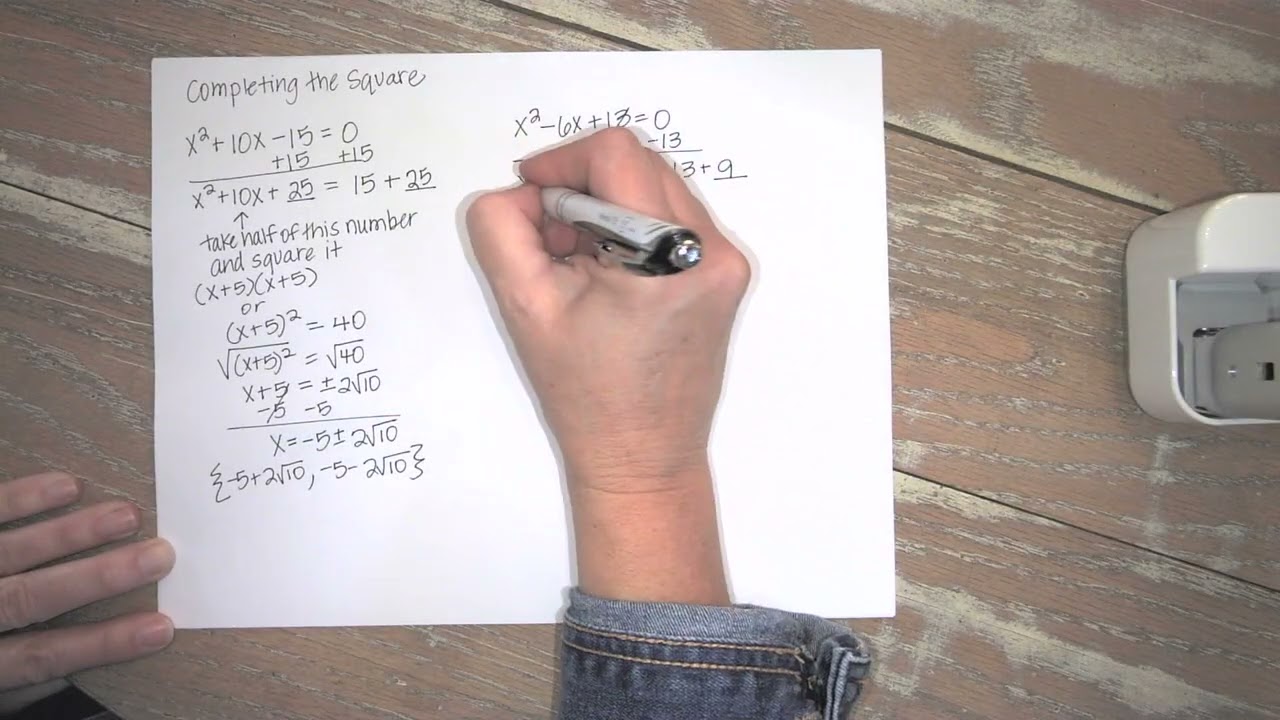 Completing the Square
x² + 10x - 15 = 0
+15 +15
x² + 10x + 25 = 15 + 25
↑
take half of this number
and square it
(x+5)(x+5)
or
(x+5)² = 40
√(x+5)² = √40
x+5 = ±2√10
-5 -5
x = -5 ± 2√10
{-5+2√10, -5-2√10}
x² - 6x + 13 = 0
-13
13 + 9